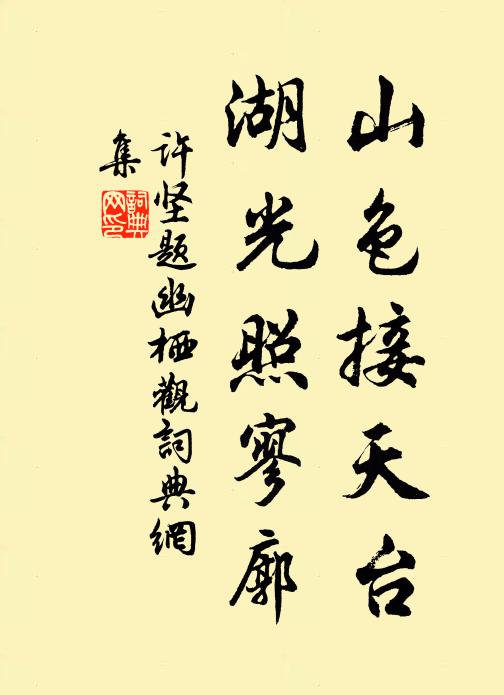 山色接天台
湖光照寥廓
许坚题幽栖觀詞典網
集
詞典
网印